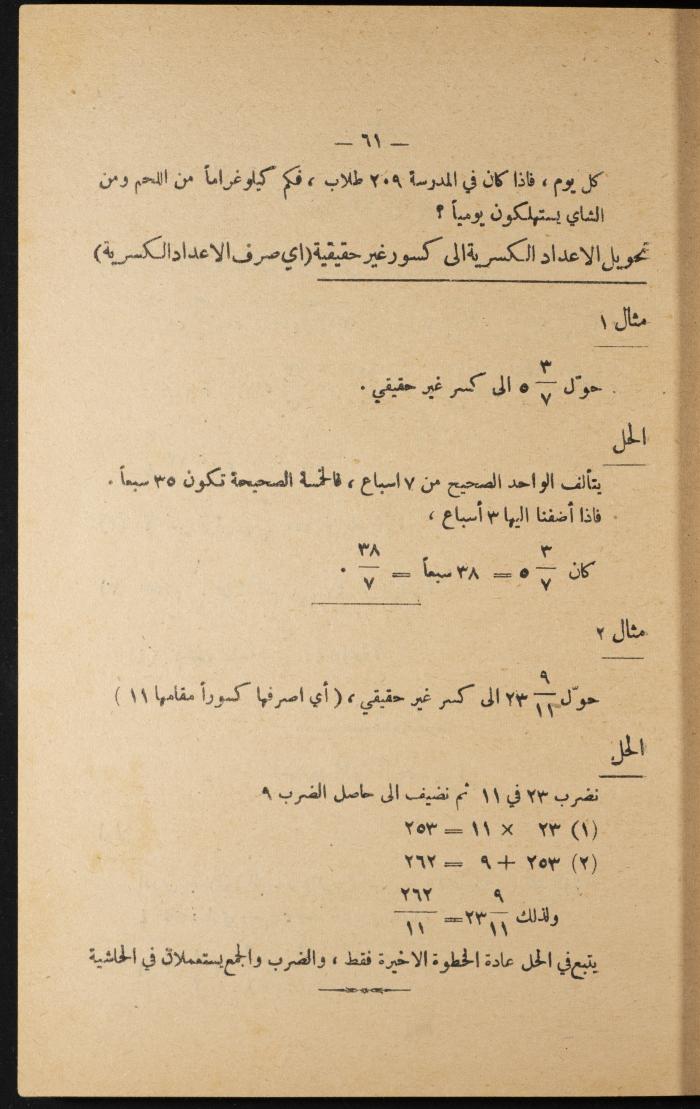 — ٦١ —
كل يوم ، فاذا كان في المدرسة ٢٠٩ طلاب ، فكم كيلوغراماً من اللحم ومن
الشاي يستهلكون يومياً ؟
تحويل الاعداد الكسرية الى كسور غير حقيقية (اي صرف الاعداد الكسرية)
مثال ١
حوّل ٣/٧ ٥ الى كسر غير حقيقي .
الحل
يتألف الواحد الصحيح من ٧ اسباع ، فالخمسة الصحيحة تكون ٣٥ سبعاً .
فاذا أضفنا اليها ٣ أسباع ،
كان ٣/٧ ٥ = ٣٨ سبعاً = ٣٨/٧ .
مثال ٢
حوّل ٩/١١ ٢٣ الى كسر غير حقيقي ، ( أي اصرفها كسوراً مقامها ١١ )
الحل
نضرب ٢٣ في ١١ ثم نضيف الى حاصل الضرب ٩
(١) ٢٣ × ١١ = ٢٥٣
(٢) ٢٥٣ + ٩ = ٢٦٢
ولذلك ٩/١١ ٢٣ = ٢٦٢/١١
يتبع في الحل عادة الخطوة الاخيرة فقط ، والضرب والجمع يستعملان في الحاشية